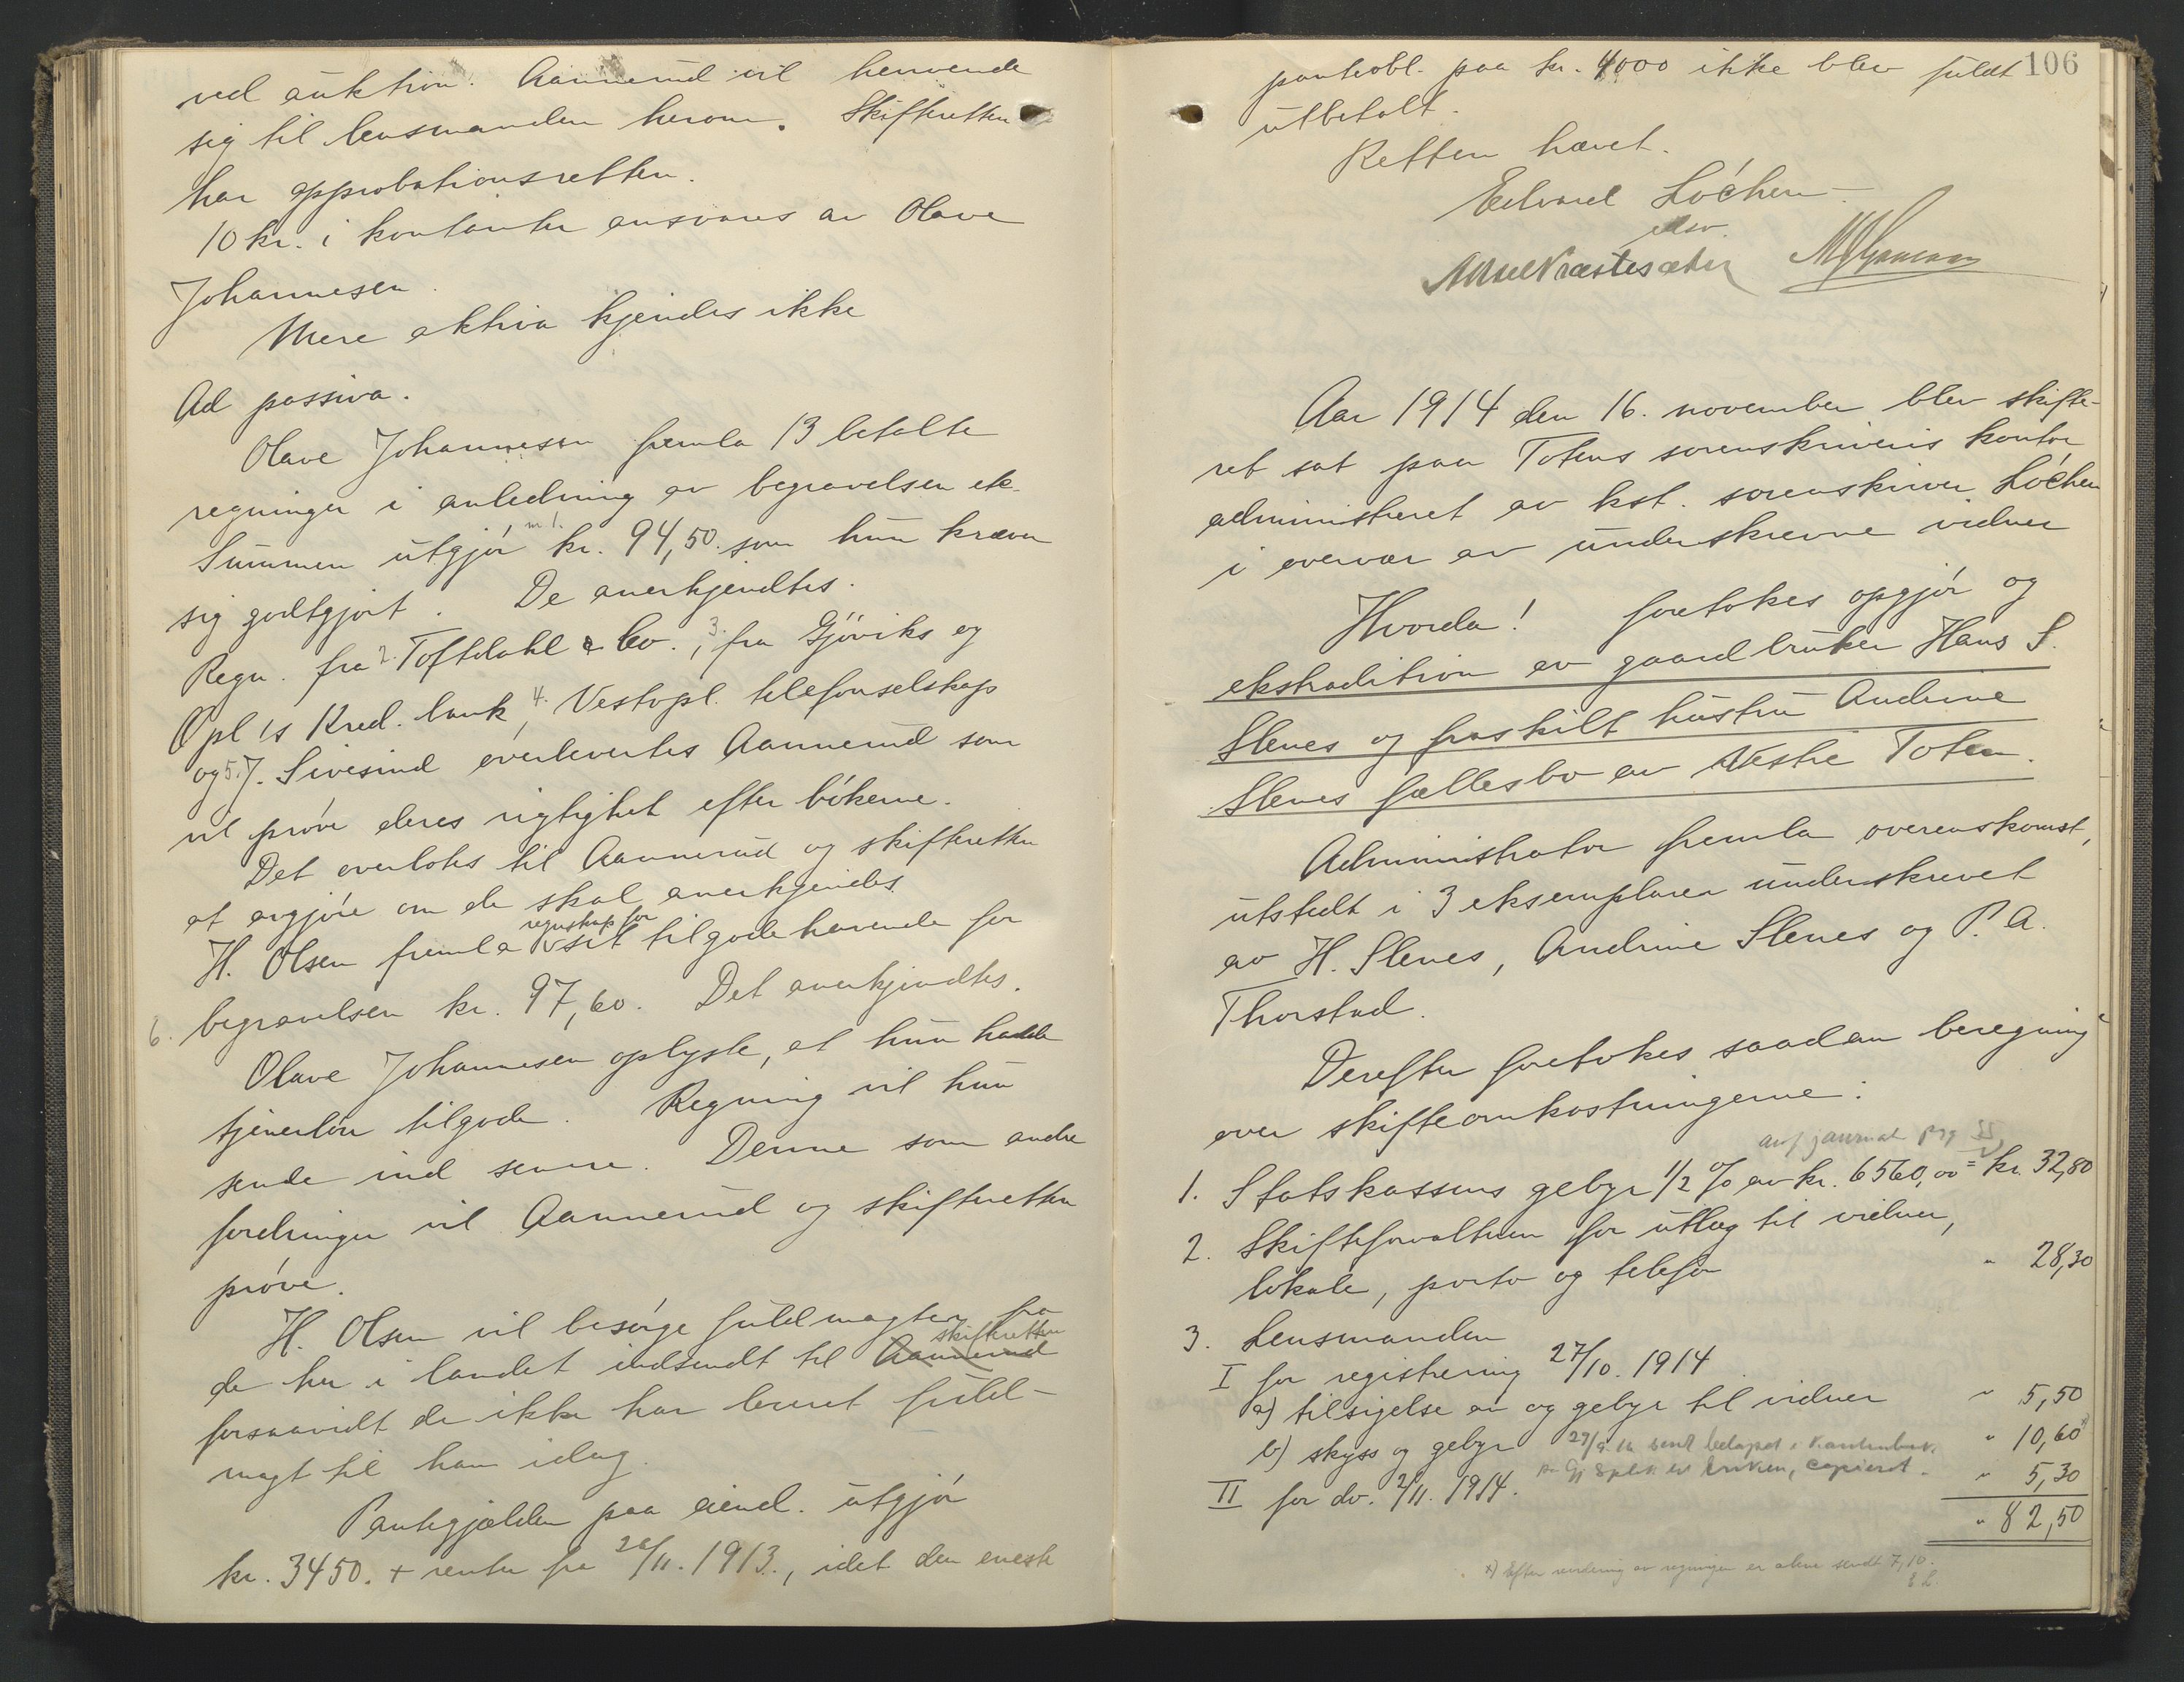 ved auktion. Aannerud vil henvende
sig til lensmanden herom. Skifteretten
har approbationsretten.
10 kr. i kontanter ansvares av Olave
Johannesen.
Mere aktiva kjendes ikke
Ad passiva.
Olave Johannesen fremla 13 betalte
regninger i anledning av begravelsen etc.
m 1.
Summen utgjör kr. 94,50. som hun kræver
sig godtgjort. De anerkjendtes.
Regn. fra 2. Toftdahl & Co., 3. fra Gjöviks og
Opl's Kred. bank, 4. Vestopl. telefonselskap
og 5. J. Sivesind overlevertes Aannerud som
vil pröve deres rigtighet efter bökerne.
Det overlotes til Aannerud og skifteretten
at avgjöre om de skal anerkjendes.
regnskap for
H. Olsen fremla sit tilgodehavende for
6. begravelsen kr. 97,60. Det anerkjendtes.
Olave Johannesen oplyste, at hun hadde
tjenerlön tilgode. Regning vil hun
sende ind senere. Denne som andre
fordringer vil Aannerud og skifteretten
pröve.
H. Olsen vil besörge fuldmagter fra
skifteretten
de her i landet indsendt til Aannerud
forsaavidt de ikke har levert fuld-
magt til ham idag.
Pantegjælden paa eiend. utgjör
kr. 3450. + renter fra 26/11. 1913., idet den eneste
106
panteobl. paa kr. 4000 ikke blev fuldt
utbetalt.
Retten hævet.
Edvard Löchen
Aar 1914 den 16. november blev skifte-
ret sat paa Totens sorenskriveris kontor
administreret av kst. sorenskriver Löchen
i overvær av underskrevne vidner
Hvorda! foretokes opgjör og
ekstradition av gaardbruker Hans S.
Slenes og fraskilt hustru Andrine
Slenes fællesbo av Vestre Toten.
Administrator fremla overenskomst,
utstedt i 3 eksemplarer underskrevet
av H. Slenes, Andrine Slenes og P. A.
Thorstad.
Derefter foretokes saadan beregning
over skifteomkostningerne:
1. Statskassens gebyr 1/2 % av kr. 6560,00 = kr. 32,80
2. Skifteforvalteren for utlæg til vidner,
lokale, porto og telefon " 28,30
3. Lensmanden
I for registrering 27/10. 1914
a) tilsigelse av og gebyr til vidner " 5,50
b) skyss og gebyr " 10,60 x)
II for do. 2/11. 1914. " 5,30
" 82,50
x) Efter vurdering av regningen er alene sendt 7,10.
E L.